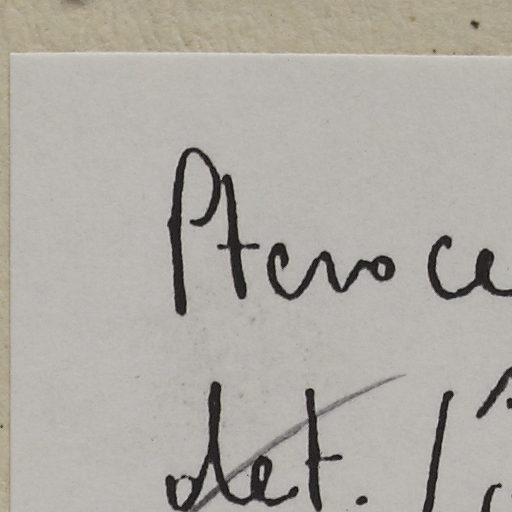 Pteroce
det. /